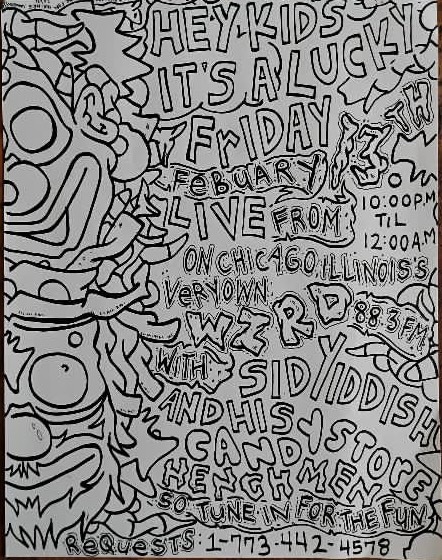 HEY KIDS
IT'S A LUCKY
FRIDAY
13TH
FEBUARY
LIVE FROM
10:00P.M
TIL
12:00A.M
ON CHICAGO ILLINOIS'S
VERY OWN
WZRD 88.3 FM
WITH SID YIDDISH
AND HIS
CANDY STORE
HENCHMEN
SO TUNE IN FOR THE FUN
REQUESTS: 1-773-442-4578